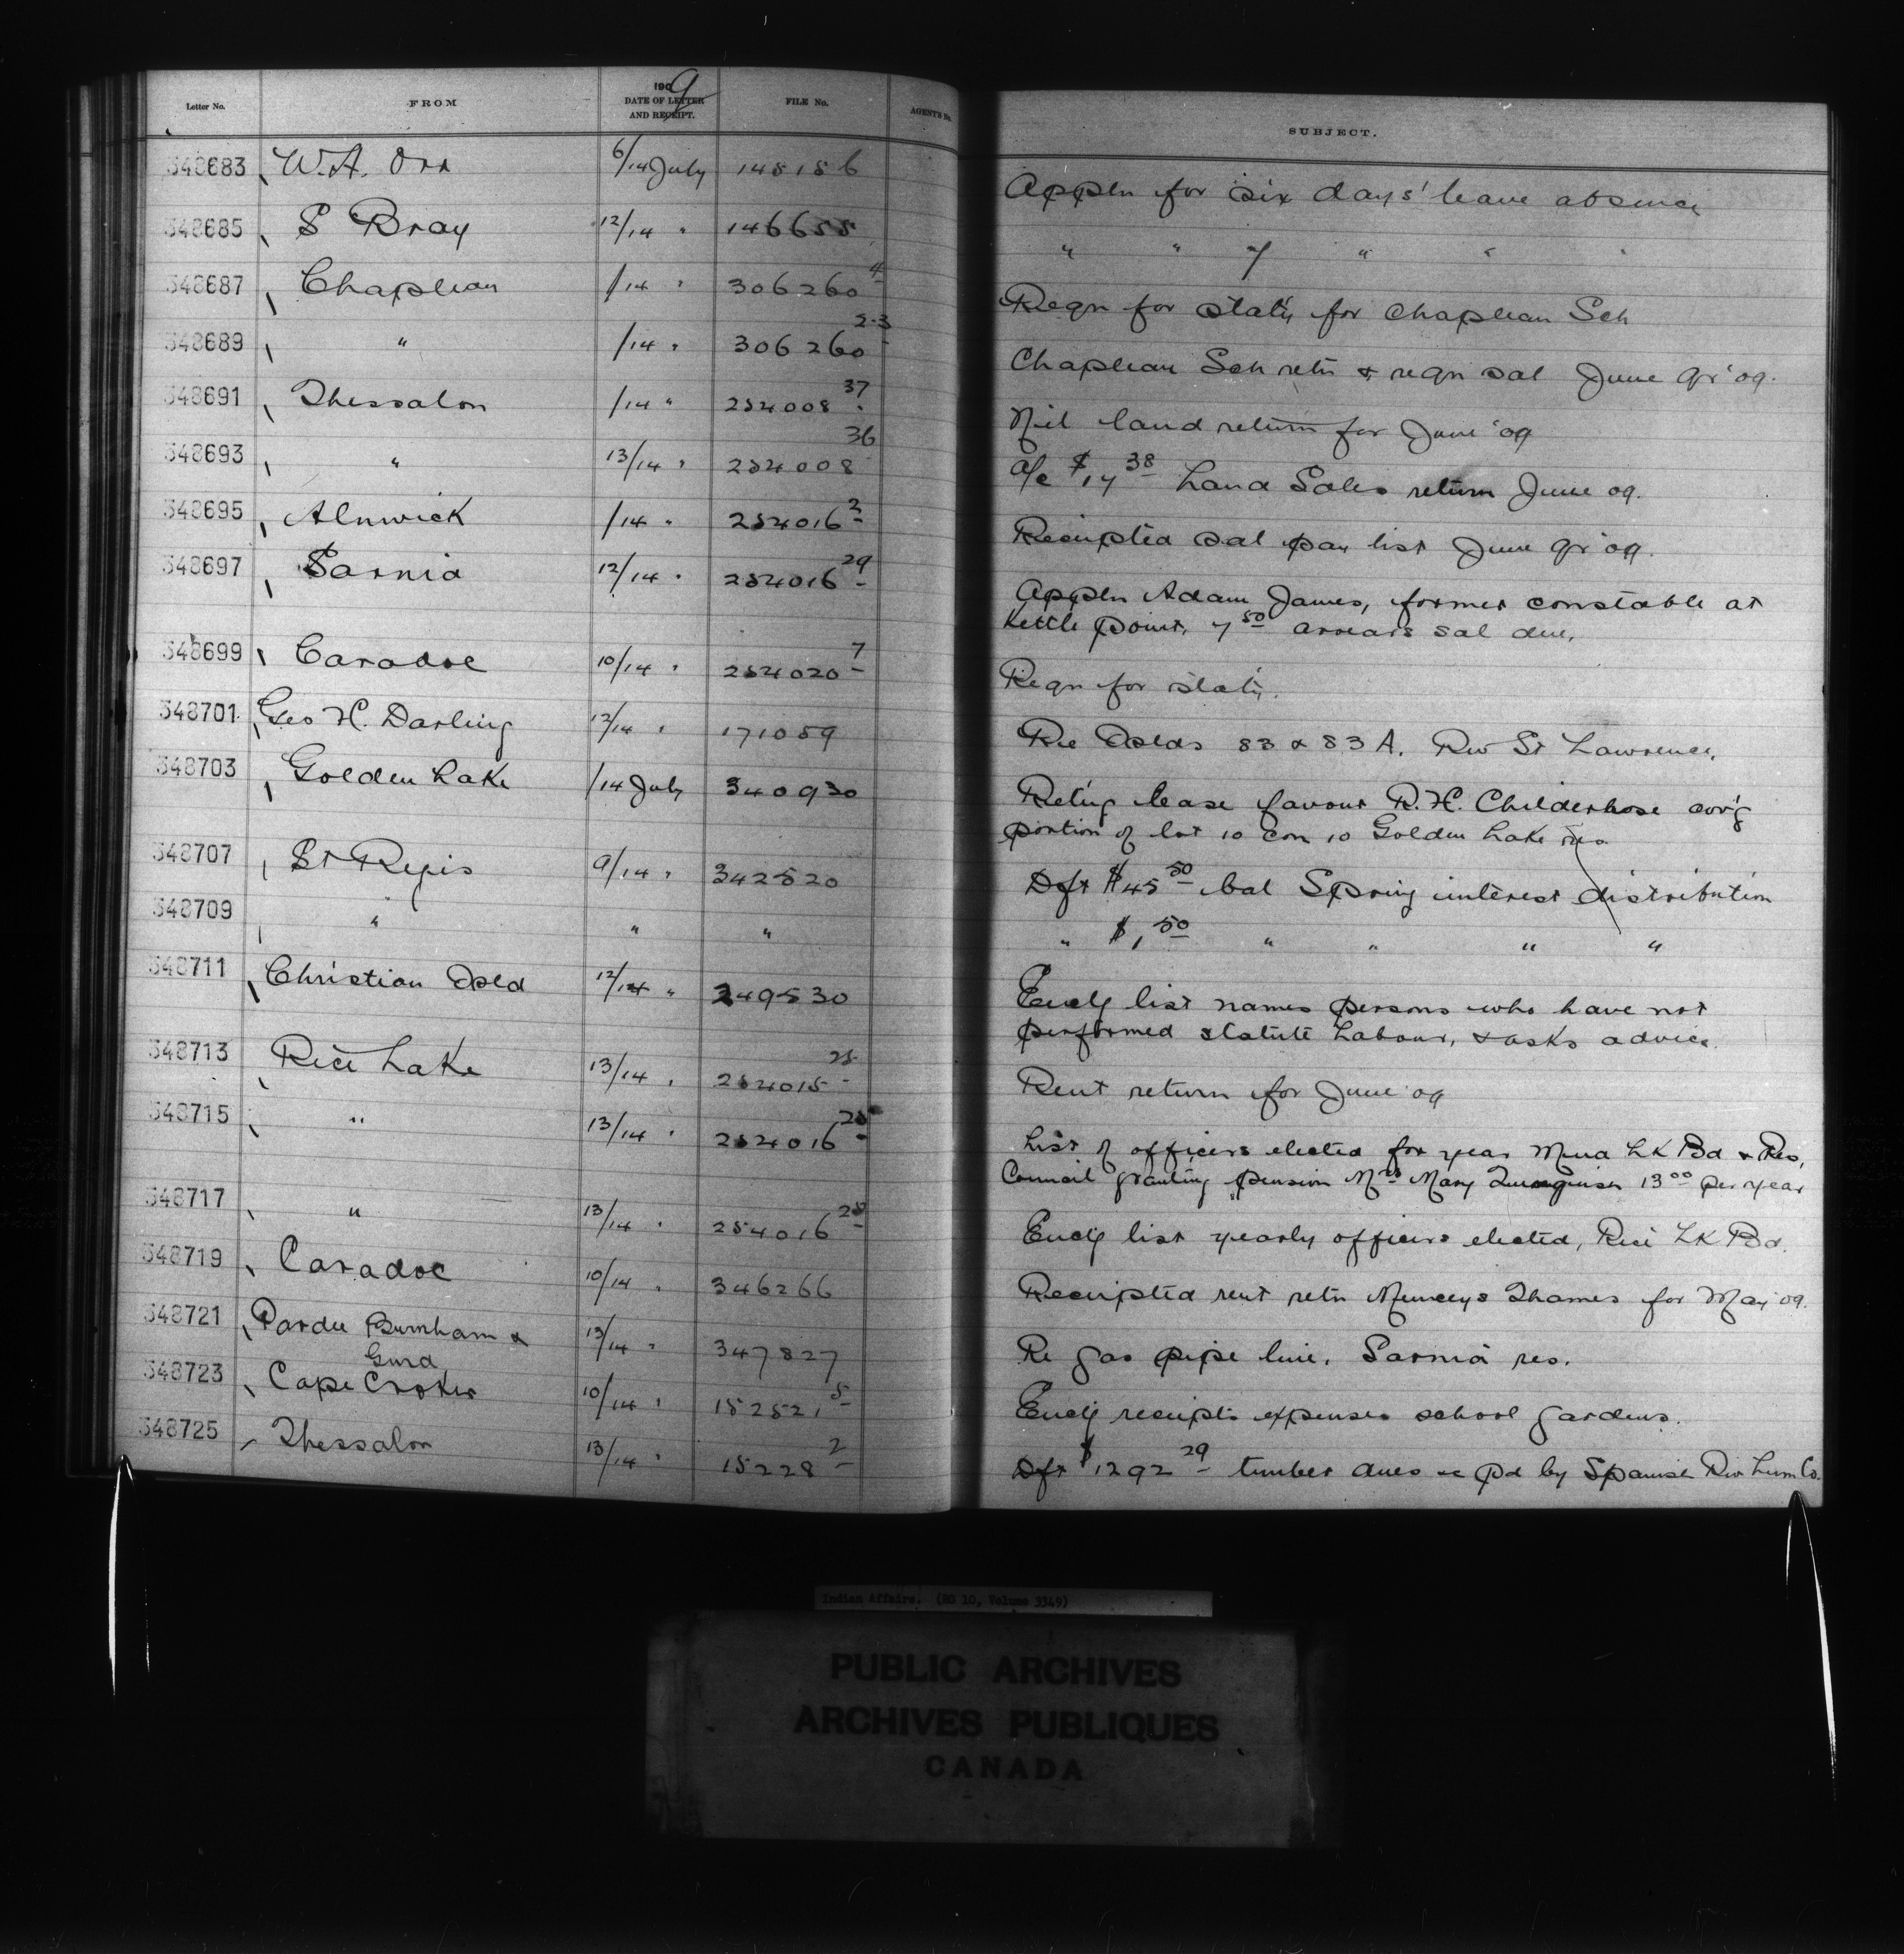 Letter No. FROM 1909 DATE OF LETTER AND RECEIPT. FILE No. AGENT'S No. SUBJECT.
348683 W.A. Orr 6/14 July 145156 Appln for six days' leave absence
348685 S Bray 12/14 " 146655 " " 7 " " "
348687 Chapleau /14 " 306260 4 Reqn for stat'y for Chapleau Sch
348689 " /14 " 306260 2-3 Chapleau Sch retn & reqn sal June qr '09.
348691 Thessalon /14 " 254008 37 Nil land return for June '09
348693 " 13/14 " 254008 36 a/c $17 38 Land Sales return June 09.
348695 Alnwick /14 " 254016 2 Receipted sal pay list June qr '09.
348697 Sarnia 12/14 " 254016 29 Appln Adam James, former constable at
Kettle Point, 7 50 arrears sal due.
348699 Caradoc 10/14 " 254020 7 Reqn for stat'y.
348701 Geo H. Darling 12/14 " 171059 Re Islds 83 & 83 A. Riv St Lawrence.
348703 Golden Lake /14 July 340930 Ret'g lease favour R.H. Childerhose cov'g
portion of lot 10 con 10 Golden Lake res.
348707 St Regis 9/14 " 342520 Dft $45 50 bal Spring interest distribution
348709 " " " " $1, 50 " " " "
348711 Christian Isld 12/14 " 249530 Encl'g list names persons who have not
performed statute Labour, & asks advice.
348713 Rice Lake 13/14 " 254015 25 Rent return for June '09
348715 " 13/14 " 254016 25 List of officers elected for year Mud Lk Bd & Res,
Council granting pension Mrs Mary 13 00 per year
348717 " 13/14 " 254016 25 Encl'g list yearly officers elected, Rice Lk Bd.
348719 Caradoc 10/14 " 346266 Receipted rent retn Munceys Thames for May '09.
348721 Pardee Burnham &
Gurd 13/14 " 347827 Re gas pipe line, Sarnia res.
348723 Cape Croker 10/14 " 152521 5 Encl'g receipts expenses school gardens.
348725 Thessalon 13/14 " 15228 2 Dft $1292 29 timber dues &c pd by Spanish Riv Lum Co.
Indian Affairs. (RG 10, Volume 3349)
PUBLIC ARCHIVES
ARCHIVES PUBLIQUES
CANADA